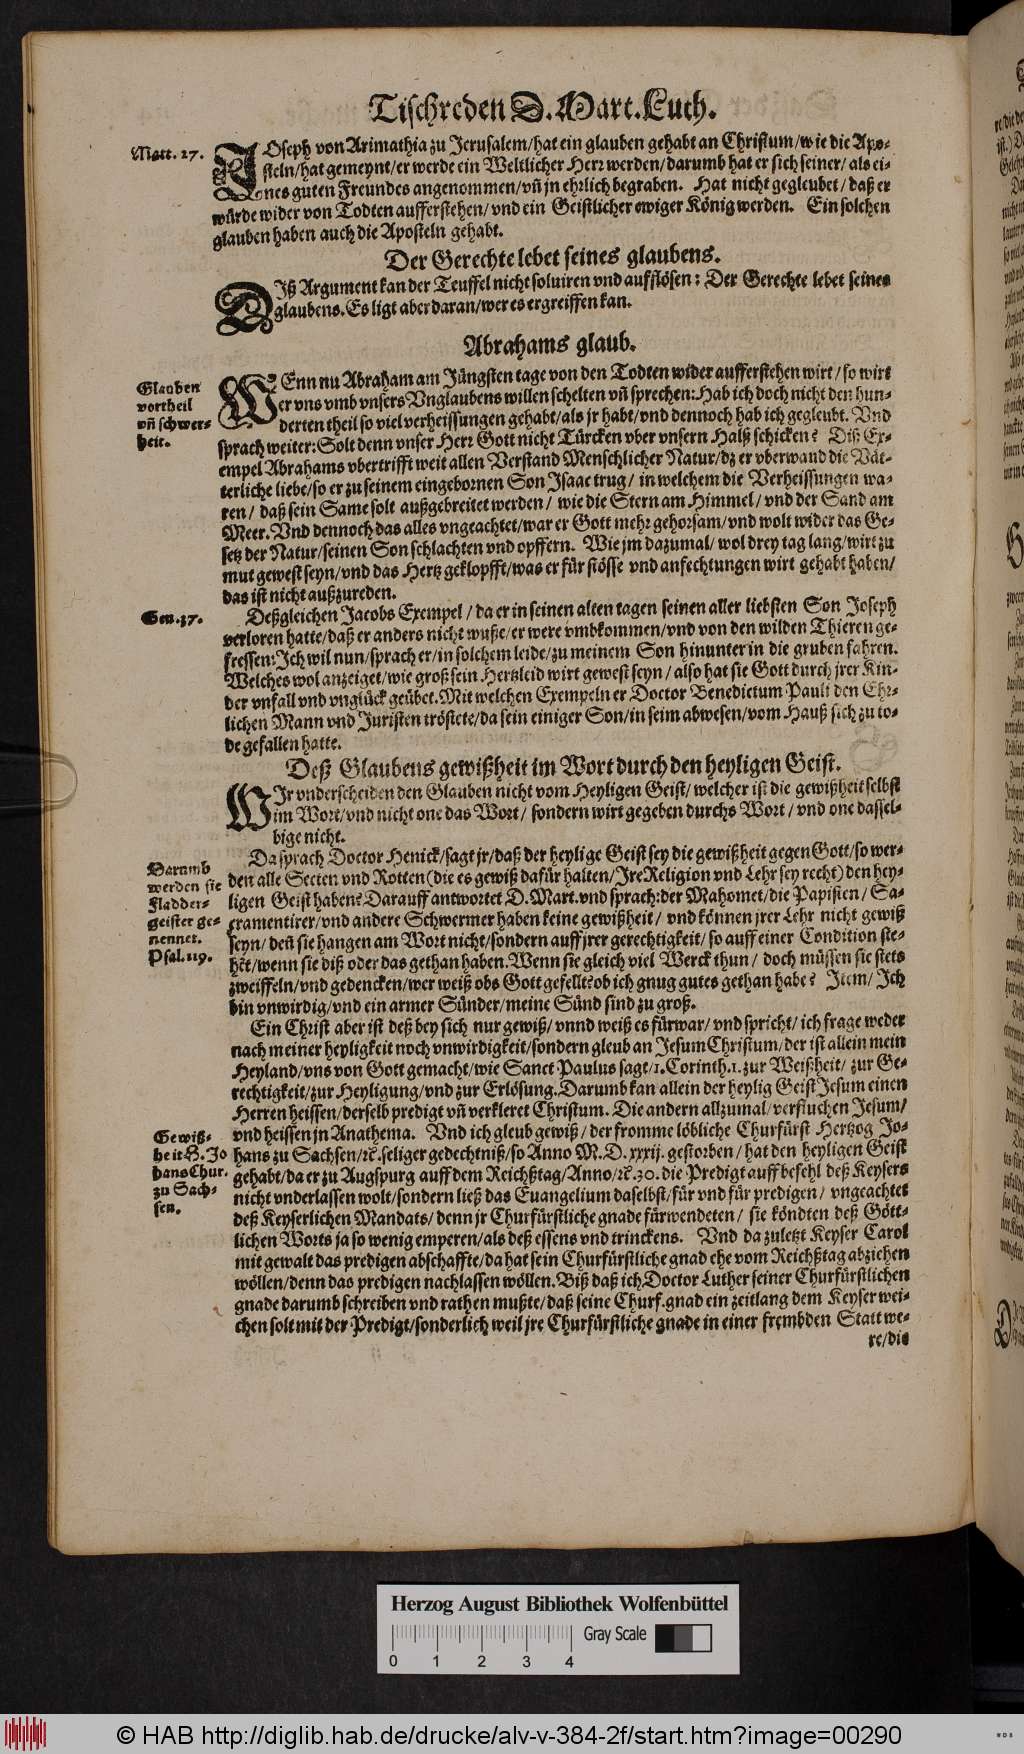 Tischreden D. Mart. Luth.
Matt. 27.
JOseph von Arimathia zu Jerusalem/hat ein glauben gehabt an Christum/wie die Apo-
steln/hat gemeynt/er werde ein Weltlicher Herr werden/darumb hat er sich seiner/als ei-
nes guten Freundes angenommen/vñ jn ehrlich begraben. Hat nicht gegleubet/daß er
würde wider von Todten aufferstehen/vnd ein Geistlicher ewiger König werden. Ein solchen
glauben haben auch die Aposteln gehabt.
Der Gerechte lebet seines glaubens.
DIß Argument kan der Teuffel nicht soluiren vnd aufflösen: Der Gerechte lebet seines
glaubens. Es ligt aber daran/wer es ergreiffen kan.
Abrahams glaub.
Glauben
vortheil
vñ schwer-
heit.
WEnn nu Abraham am Jüngsten tage von den Todten wider aufferstehen wirt/so wirt
er vns vmb vnsers Vnglaubens willen schelten vñ sprechen: Hab ich doch nicht den hun-
derten theil so viel verheissungen gehabt/als jr habt/vnd dennoch hab ich gegleubt. Vnd
sprach weiter: Solt denn vnser Herr Gott nicht Türcken vber vnsern Halß schicken? Diß Ex-
empel Abrahams vbertrifft weit allen Verstand Menschlicher Natur/dz er vberwand die Vät-
terliche liebe/so er zu seinem eingebornen Son Isaac trug/in welchem die Verheissungen wa-
ren/daß sein Same solt außgebreitet werden/wie die Stern am Himmel/vnd der Sand am
Meer. Vnd dennoch das alles vngeachtet/war er Gott mehr gehorsam/vnd wolt wider das Ge-
setz der Natur/seinen Son schlachten vnd opffern. Wie jm dazumal/wol drey tag lang/wirt zu
mut gewest seyn/vnd das Hertz geklopfft/was er für stösse vnd anfechtungen wirt gehabt haben/
das ist nicht außzureden.
Gen. 37.
Deßgleichen Jacobs Exempel/da er in seinen alten tagen seinen aller liebsten Son Joseph
verloren hatte/daß er anders nicht wuste/er were vmbkommen/vnd von den wilden Thieren ge-
fressen: Ich wil nun/sprach er/in solchem leide/zu meinem Son hinunter in die gruben fahren.
Welches wol anzeiget/wie groß sein Hertzleid wirt gewest seyn/also hat sie Gott durch jrer Kin-
der vnfall vnd vnglück geübet. Mit welchen Exempeln er Doctor Benedictum Pauli den Ehr-
lichen Mann vnd Juristen tröstete/da sein einiger Son/in seim abwesen/vom Hauß sich zu to-
de gefallen hatte.
Deß Glaubens gewißheit im Wort durch den heyligen Geist.
WIr vnderscheiden den Glauben nicht vom Heyligen Geist/welcher ist die gewißheit selbst
im Wort/vnd nicht one das Wort/sondern wirt gegeben durchs Wort/vnd one dassel-
bige nicht.
Darumb
werden sie
Fladder-
geister ge-
nennet.
Psal. 119.
Da sprach Doctor Henick/sagt jr/daß der heylige Geist sey die gewißheit gegen Gott/so wer-
den alle Secten vnd Rotten (die es gewiß dafür halten/Jre Religion vnd Lehr sey recht) den hey-
ligen Geist haben? Darauff antwortet D. Mart. vnd sprach: der Mahomet/die Papisten/Sa-
cramentirer/vnd andere Schwermer haben keine gewißheit/vnd können jrer Lehr nicht gewiß
seyn/deñ sie hangen am Wort nicht/sondern auff jrer gerechtigkeit/so auff einer Condition ste-
hēt/wenn sie diß oder das gethan haben. Wenn sie gleich viel Werck thun/doch müssen sie stets
zweiffeln/vnd gedencken/wer weiß obs Gott gefellt? ob ich gnug gutes gethan habe? Item/Ich
bin vnwirdig/vnd ein armer Sünder/meine Sünd sind zu groß.
Ein Christ aber ist deß bey sich nur gewiß/vnnd weiß es fürwar/vnd spricht/ich frage weder
nach meiner heyligkeit noch vnwirdigkeit/sondern gleub an Jesum Christum/der ist allein mein
Heyland/vns von Gott gemacht/wie Sanct Paulus sagt/1. Corinth. 1. zur Weißheit/zur Ge-
rechtigkeit/zur Heyligung/vnd zur Erlösung. Darumb kan allein der heylig Geist Jesum einen
Herren heissen/derselb predigt vñ verkleret Christum. Die andern allzumal/verfluchen Jesum/
Gewiß-
heit H. Jo
hans Chur.
zu Sach-
sen.
vnd heissen jn Anathema. Vnd ich gleub gewiß/der fromme löbliche Churfürst Hertzog Jo-
hans zu Sachsen/ꝛc̄. seliger gedechtniß/so Anno M. D. xxxij. gestorben/hat den heyligen Geist
gehabt/da er zu Augspurg auff dem Reichßtag/Anno/ꝛc̄. 30. die Predigt auff befehl deß Keysers
nicht vnderlassen wolt/sondern ließ das Euangelium daselbst/für vnd für predigen/vngeachtet
deß Keyserlichen Mandats/denn jr Churfürstliche gnade fürwendeten/sie köndten deß Gött-
lichen Worts ja so wenig emperen/als deß essens vnd trinckens. Vnd da zuletzt Keyser Carol
mit gewalt das predigen abschaffte/da hat sein Churfürstliche gnad ehe vom Reichßtag abziehen
wöllen/denn das predigen nachlassen wöllen. Biß daß ich Doctor Luther seiner Churfürstlichen
gnade darumb schreiben vnd rathen mußte/daß seine Churf. gnad ein zeitlang dem Keyser wei-
chen solt mit der Predigt/sonderlich weil jre Churfürstliche gnade in einer frembden Statt we-
re/die
Herzog August Bibliothek Wolfenbüttel
0 1 2 3 4
Gray Scale
© HAB http://diglib.hab.de/drucke/alv-v-384-2f/start.htm?image=00290